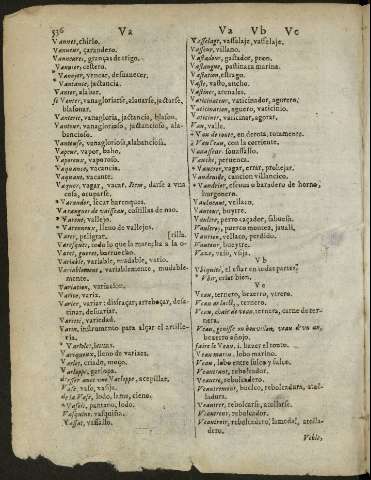 536 Va
Va Vb Ve
Vannet, chirlo.
Vanneur, çarandero.
Vanneures, granças de trigo.
Vannier, cestero.
* Vanoyer, vencar, desuanecer.
* Vantance, jactancia.
Vanter, alabar.
se Vanter, vanagloriarse, alauarse, jactarse,
blasonar.
Vanterie, vanagloria, jactancia, blason.
Vanteur, vanaglorioso, jactancioso, ala-
bancioso.
Vanteuse, vanagloriosa, alabanciosa.
Vapeur, vapor, baho.
Vaporeux, vaporoso.
Vaquance, vacancia.
Vaquant, vacante.
Vaquer, vagar, vacar. Item, darse a vna
cosa, ocuparse.
* Varander, secar harenques.
Varangues de vaisseau, costillas de nao.
* Varenne, vallejo.
* Varenneux, lleno de vallejos.
Varer, peligrar. [rilla.
Varesques, todo lo que la mar echa a la o-
Varet, garret, barruecho.
Variable, variable, mudable, vario.
Variablement, variablemente, mudable-
mente.
Variation, variacion.
Varice, variz.
Varier, variar: disfraçar, arrebaçar, desa-
tinar, desuariar.
Varieté, variedad.
Varin, instrumento para alçar el artille-
ria.
* Varioles, bexigas.
Variqueux, lleno de varizes.
Varlet, criado, moço.
Varloppe, garlopa.
dresser auec une Varloppe, acepillar.
Vase, vaso, vasija.
de la Vase, lodo, lamo, cieno.
* Vaseis, pantano, lodo.
Vasquine, vasquiña.
Vassal, vassallo.
Vasselage, vassallaje, vassallaje.
Vasseur, villano.
Vastadour, gastador, peon.
Vastangue, pastinaca marina.
Vastation, estrago.
Vaste, vasto, ancho.
Vastines, arenales.
Vaticinateur, vaticinador, agorero.
Vaticination, aguero, vaticinio.
Vaticiner, vaticinar, agorar.
Vau, valle.
* Vau de route, en derota, rotamente.
à Vau l'eau, con la corriente.
Vauasseur, souassallo.
Vauche, peruenca.
* Vaucrer, vagar, errar, prohejar.
Vaudeuille, cancion villancico.
* Vaudelet, escoua o baradero de horno,
hurgonero.
Vaulotant, vellaco.
Vautour, buytre.
Vaultre, perro caçador, sabueso.
Vaultrer, puerco montes, jauali.
Vaurien, vellaco, perdido.
Vautour, bueytre.
Vaxe, vaso, vasija.
Vb
Vbiquité, el estar en todas partes.
* Vbir, criar bien.
Ve
Veau, ternero, bezerro, virero.
Veau de laict, ternero.
Veau, chair de veau, ternera, carne de ter-
nera.
Veau, genisse ou bouvillon, veau d'un an,
bezerro añojo.
faire le Veau, i. hazer el tonto.
Veau marin, lobo marino.
Veau, lobo entre sulco y sulco.
Veautrant, rebolcador.
Veautre, rebolcadero.
Veautrement, buelco, rebolcadura, atol-
ladura.
Veautrer, rebolcarse, atollarse.
Veautreur, rebolcador.
Veautroir, rebolcadero, lamedal, atolla-
dero.
Veble,